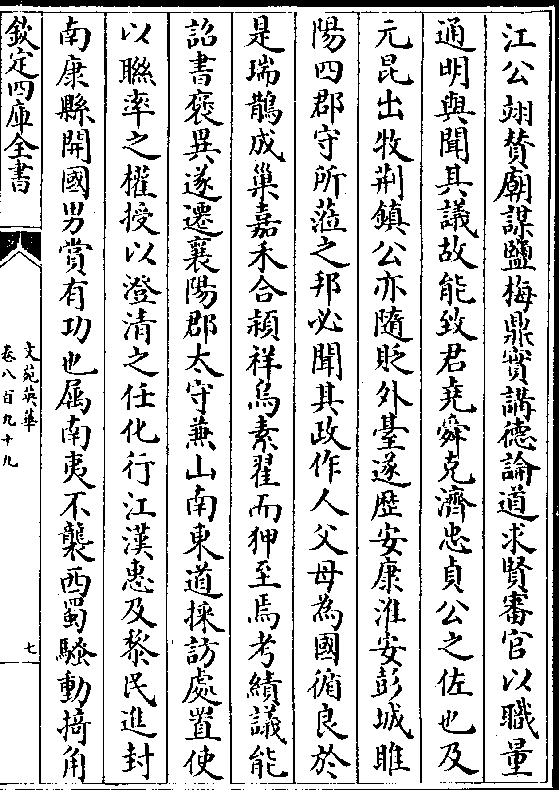 江公翊賛廟謀鹽梅鼎實講德論道求賢審官以職量
通明與聞其議故能致君堯舜克濟忠貞公之佐也及
元昆出牧荆鎮公亦隨貶外臺遂歴安康淮安彭城睢
陽四郡守所蒞之邦必聞其政作人父母為國循良於
是瑞鵲成巢嘉禾合穎祥烏素翟而狎至焉考績議能
詔書褒異遂遷襄陽郡太守兼山南東道採訪處置使
以聯率之權授以澄清之任化行江漢惠及黎民進封
南康縣開國男賞有功也屬南夷不襲西蜀騷動掎角
欽定四庫全書
文苑英華
卷八百九十九
七